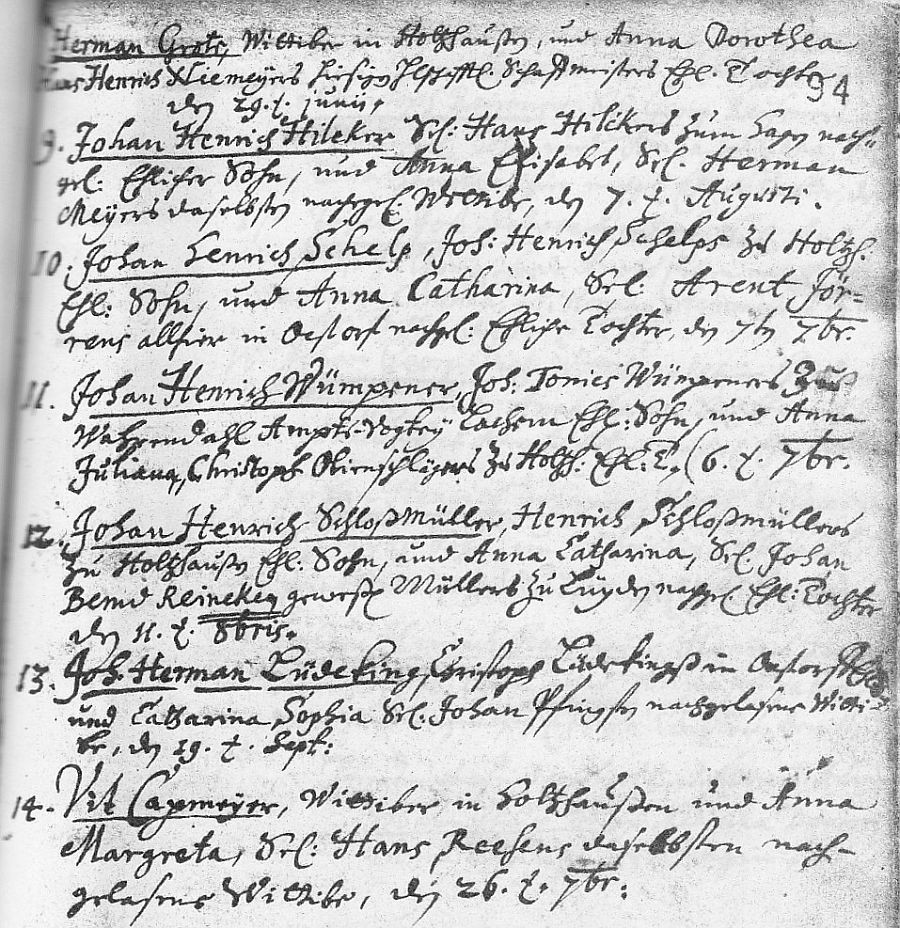 Herman Grote, Wittiber in Holtzhaußen, und Anna Dorothea
Hans Henrich Niemeyers Schafftmeisters Ehl. Tochter
94
den 29. t. junii.
9. Johan Henrich Hilcker Sel: Hans Hilckers zum Hagen nach-
gel: Ehlicher Sohn, und Anna Elisabet, Sel. Herman
Meyers daselbsten nachgel. Wittibe, den 7. t. Augusti.
10. Johan Henrich Schelp, Joh: Henrich Schelps zu Holtzh.
Ehl: Sohn, und Anna Catharina, Sel. Arent Jör-
rens allhier in Oestorf nachgel: Ehliche Tochter, den 7br.
11. Johan Henrich Wümpener, Joh: Tonies Wümpeners
Wahrendahl Ampts-Vogtey Lachem Ehl: Sohn, und Anna
Juliana, Christoph Olienschlägers zu Holtzh: Ehl: T. 6. t. 7br.
12. Johan Henrich Schloßmüller, Henrich Schloßmüllers
zu Holtzhaußen Ehl: Sohn, und Anna Catharina, Sel. Johan
Bernd Reineken geweßen Müllers zu Lüyden nachgel. Ehl: Tochter
den 11. t. 8bris.
13. Joh. Herman Lüdeking, Christoph Lüdekingß in Oestorf
und Catharina Sophia Sel: Johan Pfingsten nachgelaßene Witti-
be, den 19. t. Sept:
14. Vit Capmeyer, Wittiber in Holtzhaußen und Anna
Margreta, Sel: Hans Reesens daselbsten nach-
gelasene Wittibe, den 26. t. 7br: